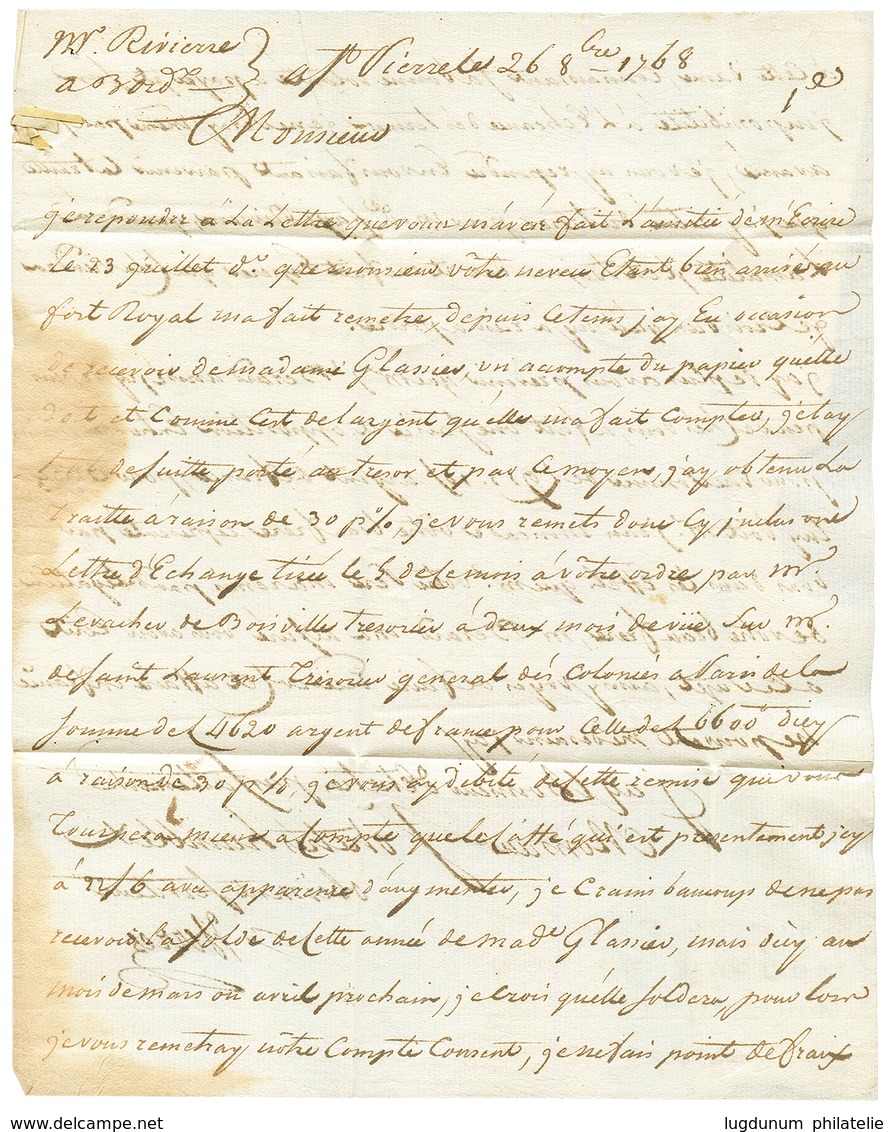 Mr. Rivierre
a Bordx
a St Pierre le 26 8bre 1768
Monsieur
je reponds a La Lettre que vous m'avés fait L'amitié de m'Ecrire
Le 23 juillet dr. que monsieur vôtre neveu Etant bien arrivé au
fort Royal ma fait remetre depuis Ce tems jay Eu occasion
de recevoir de madame Glassier, un acompte du papier qu'elle
doit et Comme C'est de l'argent qu'elle ma fait Compter, je l'ay
tout de suitte porté au tresor et par Ce moyen, j'ay obtenu La
traitte à raison de 30 p% je vous remets donc Cy jnclus une
Lettre d'Echange tirée le 5 de Ce mois à vôtre ordre par mr.
Levacher de Boisville tresorier à deux mois de vüe Sur mr.
de saint Laurent Trésorier general dés Colonies a Paris de la
somme de L 4620 argent de france pour Celle de L 6600 d'icy
à raison de 30 p% je vous ay debité de Cette remise qui vous
Tournera mieux a Compte que le Caffé qui est presentement jcy
à 22/6 avec apparence d'augmenter, je Crains beaucoup de ne pas
recevoir La solde de Cette année de made. Glassier, mais d'icy au
mois de mars ou avril prochain, je Crois qu'elle soldera, pour lors
je vous remetray vôtre Compte Courent, je ne fais point de fraix
lugdunum philatelie
www.delcampe.net